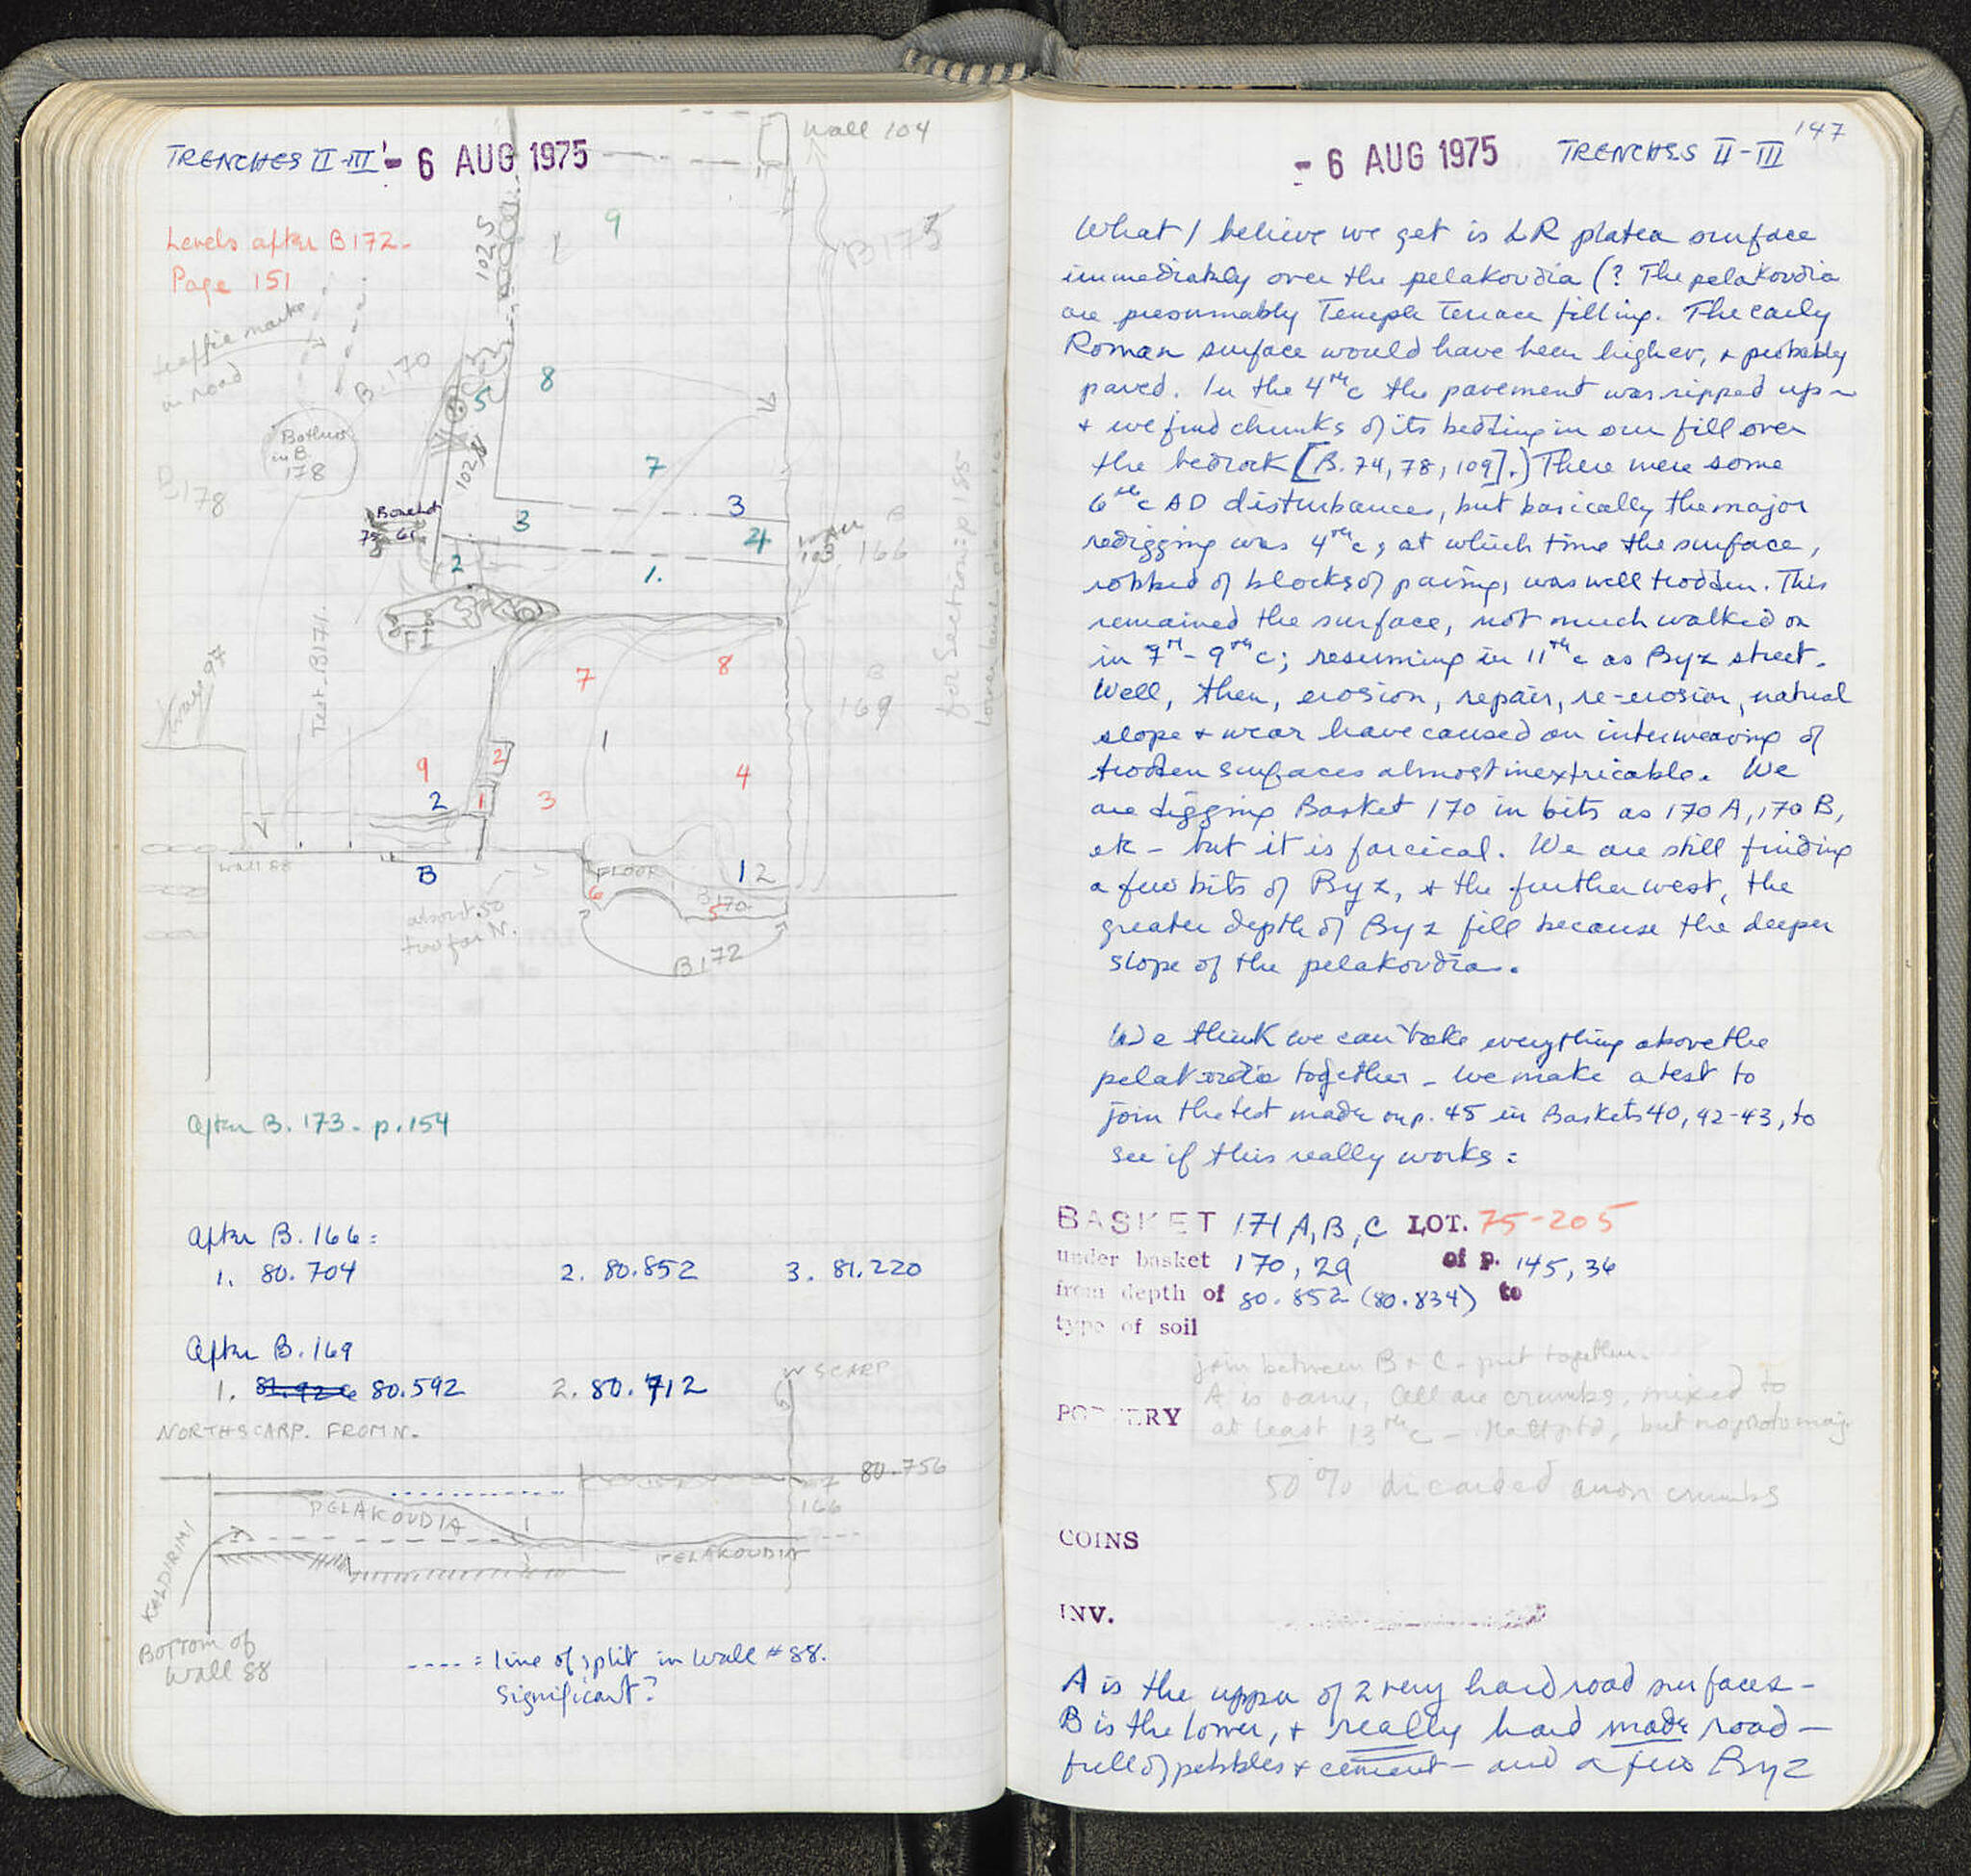 TRENCHES II-III - 6 AUG 1975
Wall 104
Levels after B172-
Page 151
102 S
9
B175
traffic marks
in road
B. 170
5
8
Bothros
in B.
178
B178
102
7
Bone Lot
75-61
3
3
2
4
1.
B
166
Test B171.
7
8
B
169
for Section: p 155
9
2
1
2
1
3
4
Wall 88
B
FLOOR
1 2
6
5
B 170
about .50
too far N.
B172
After B. 173 - p. 154
After B. 166:
1. 80.704 2. 80.852 3. 81.220
After B. 169
1. 80.592 2. 80.712
W SCARP
NORTH SCARP. FROM N.
80.756
166
PELAKOUDIA
PELAKOUDIA
KALDIRIMI
Bottom of
Wall 88
---- = line of split in Wall # 88.
Significant?
147
- 6 AUG 1975 TRENCHES II-III
What I believe we get is LR platea surface
immediately over the pelakoudia (? The pelakoudia
are presumably Temple Terrace filling. The early
Roman surface would have been higher, + probably
paved. In the 4th c the pavement was ripped up -
+ we find chunks of its bedding in our fill over
the bedrock [B. 74, 78, 109].) There were some
6th c AD disturbances, but basically the major
redigging was 4th c, at which time the surface,
robbed of blocks of paving, was well trodden. This
remained the surface, not much walked on
in 7th - 9th c; resuming in 11th c as Byz street.
Well, then, erosion, repair, re-erosion, natural
slope + wear have caused an interweaving of
trodden surfaces almost inextricable. We
are digging Basket 170 in bits as 170 A, 170 B,
etc - but it is farcical. We are still finding
a few bits of Byz, + the further west, the
greater depth of Byz fill because the deeper
slope of the pelakoudia.
We think we can take everything above the
pelakoudia together - we make a test to
join the test made on p. 45 in Baskets 40, 42-43, to
see if this really works:
BASKET 171 A, B, C LOT. 75-205
under basket 170, 29 of p. 145, 36
from depth of 80.852 (80.834) to
type of soil
join between B + C - put together.
A is same, all are crumbs, mixed to
POTTERY at least 13th c - Matt ptd, but no proto maj.
50% discarded crumbs
COINS
INV.
A is the upper of 2 very hard road surfaces -
B is the lower, + really hard made road -
full of pebbles + cement - and a few Byz